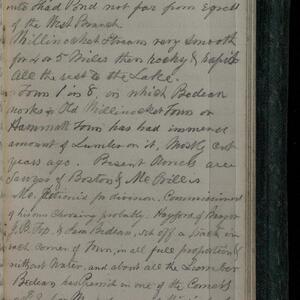 into Shad Pond not far from Egress
of the West Branch.
Millinocket Stream very smooth
for 4 or 5 Miles then rocky & rapids
all the rest to the Lake.
Town 1 in 8, on which Bodean
works is Old Millinocket Town or
Hammatt Town has had immense
amount of Lumber on it. Mostly cut
years ago. Present Owners are
Sawyer of Boston & McCrillis
Mc. petitions for division, Commissioners
of his own choosing probably, Hayford of Bangor
J. B. Fox, & Sam Bodean, set off a Tract in
each corner of Town, in all full proportion &
without Water, and about all the Lumber
Bodean has Permit in one of the Corners